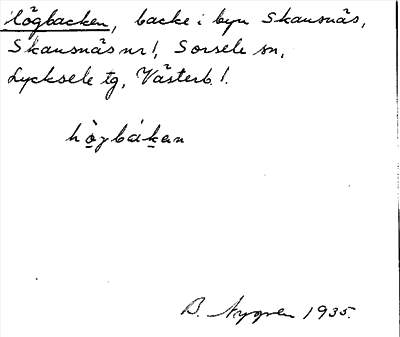 Högbacken, backe i byn Skansnäs,
Skansnäs nr 1, Sorsele sn,
Lycksele tg, Västerb. l.
hö̀gbákan
B. Nygren 1935.